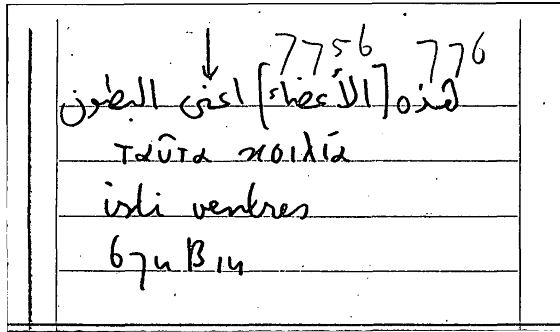 7756 776
هذه [الأعضاء] اعنى البطون
ταῦτα κοιλία
isti ventres
67u B1u